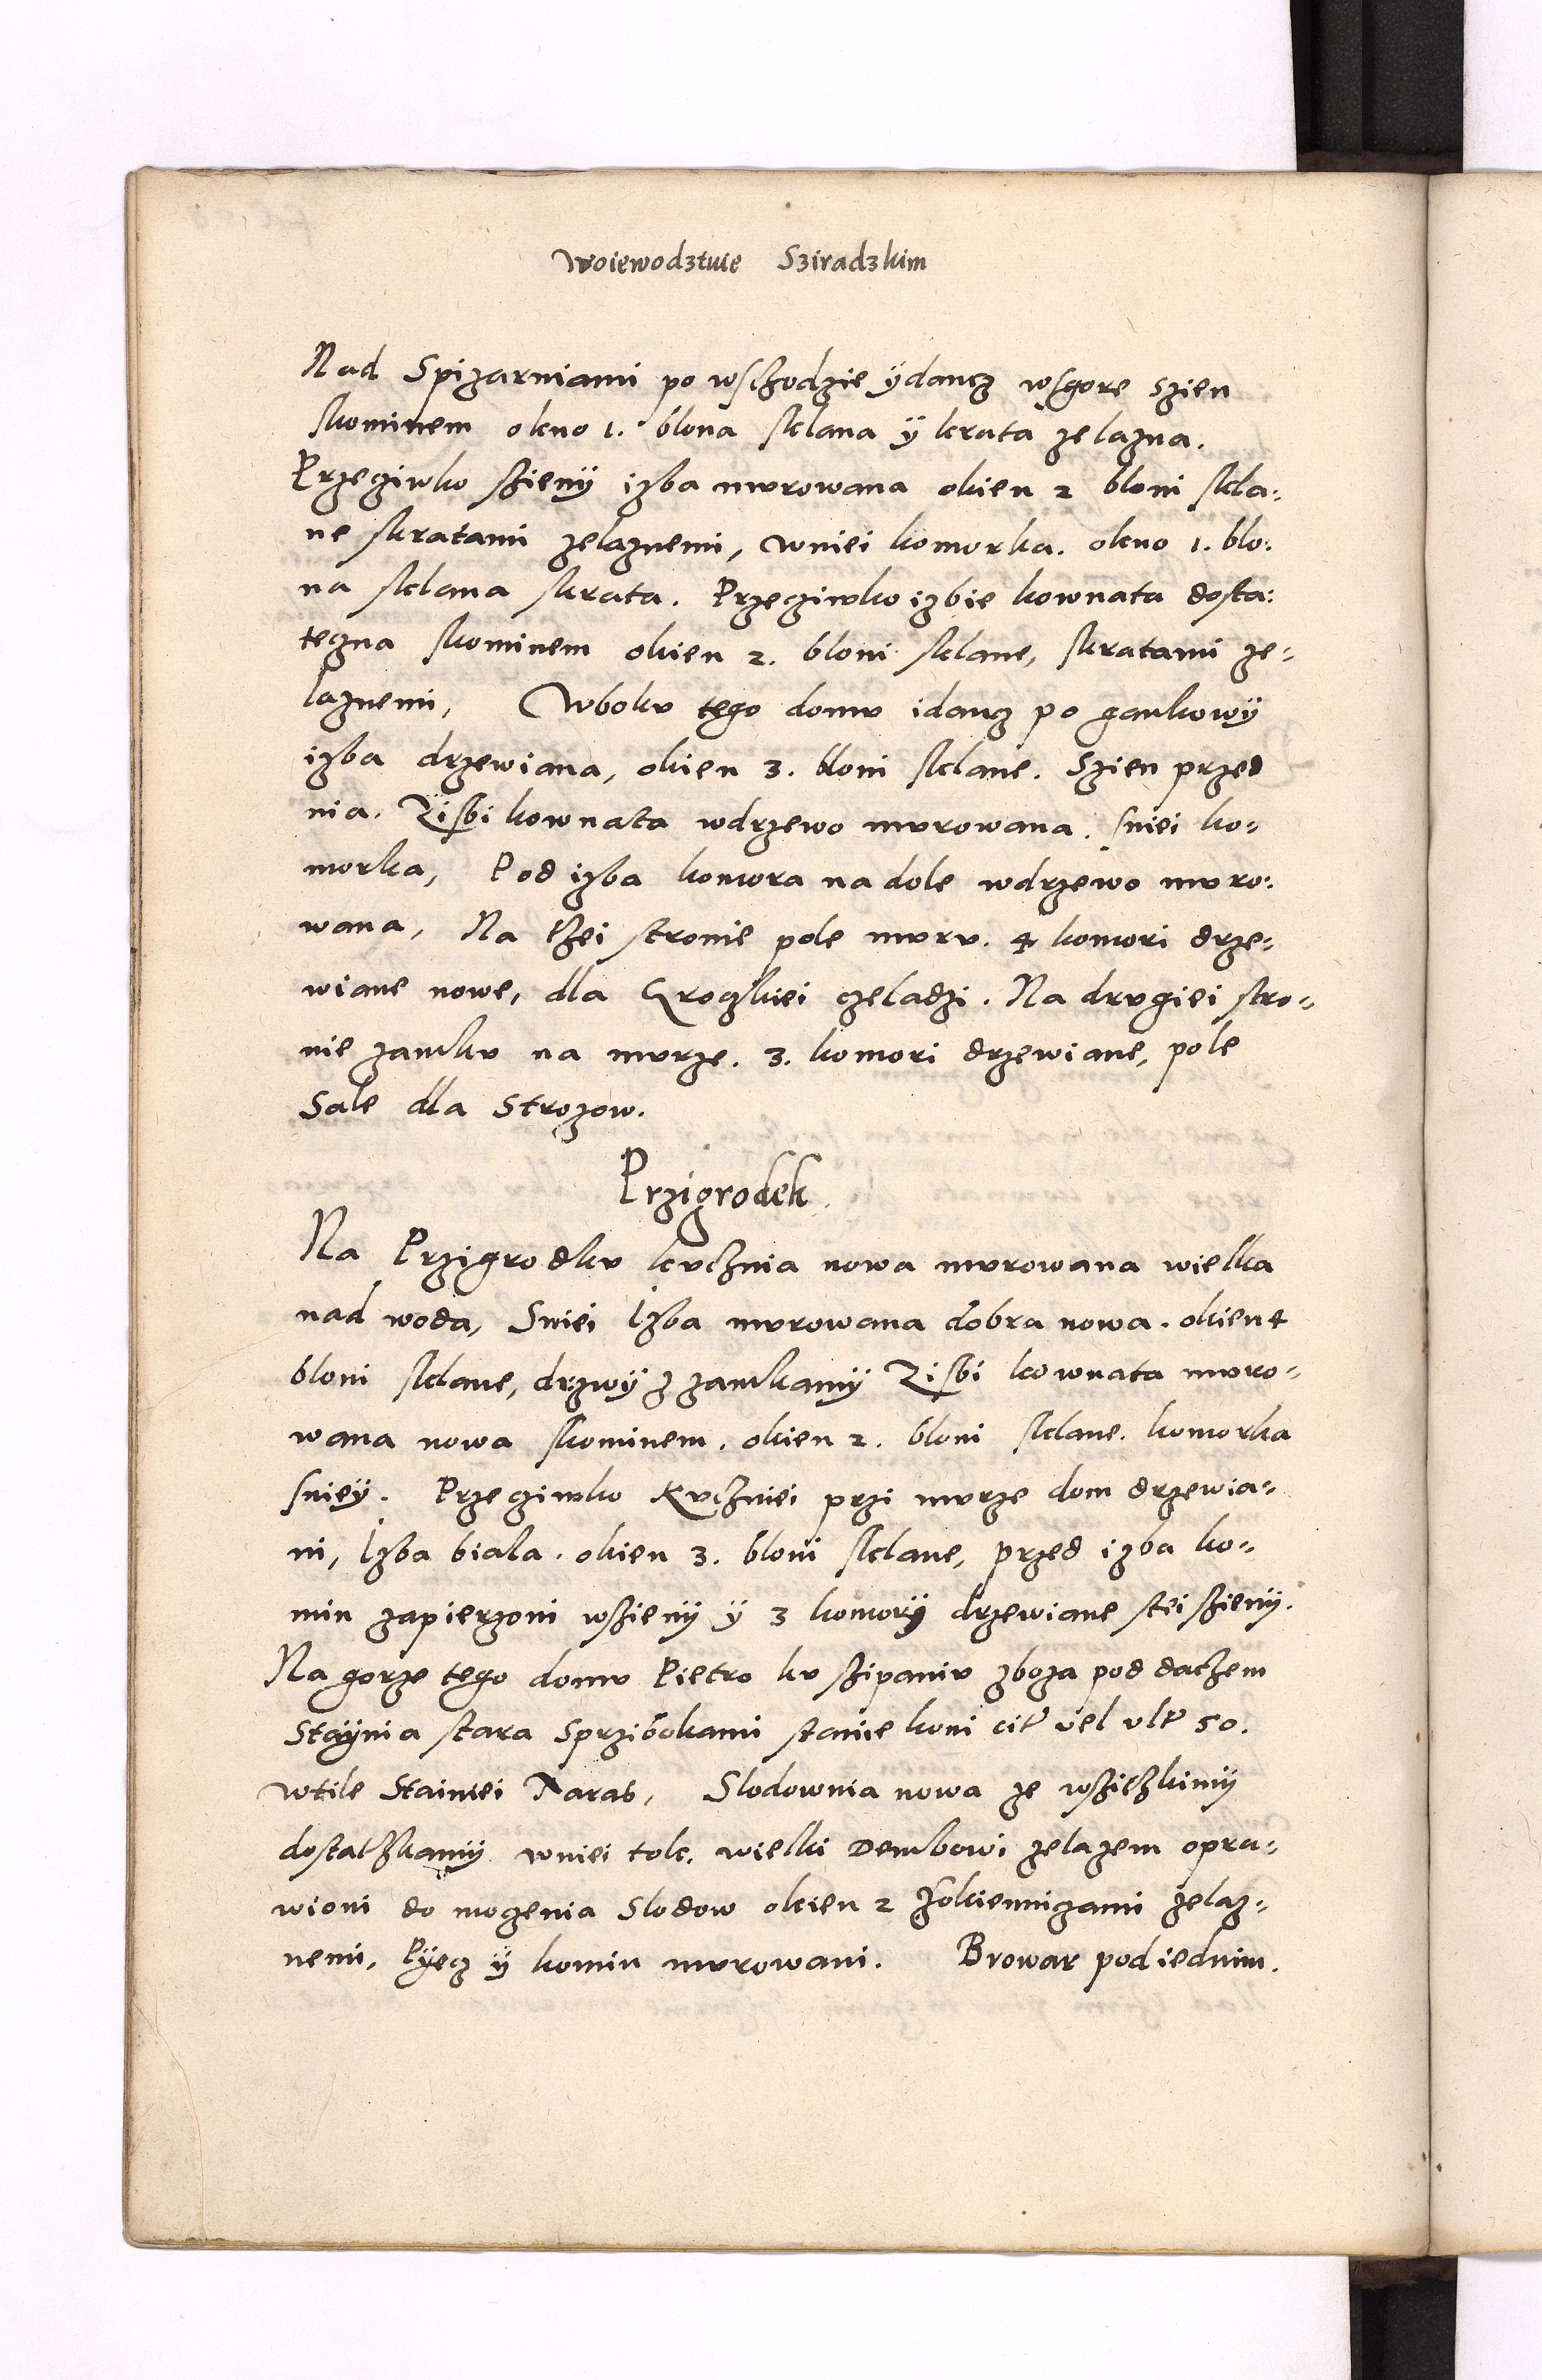 Woiewodztwie Sziradzkim
Nad Spizarniami po wschodzie ÿdancz wsgore szien
skominem okno 1. blona sklana ÿ krata zelazna.
Przeciwko szienÿ izba mvrowana okien 2 bloni skla:
ne skratami zelaznemi, wniei komorka. okno 1. blo:
na sklana skrata. Przecziwko izbie kownata dosta:
teczna skominem okien 2. bloni sklane, skratami ze=
laznemi, Wbokv tego domv idancz po gankowÿ
izba drzewiana, okien 3. bloni sklane. Szien przed
nia. Zisbi kownata wdrzewo mvrowana. sniei ko=
morka, Pod izba komora na dole wdrzewo mvro:
wana, Na tzei stronie pole mvrv. 4 komori drze=
wiane nowe, dla Groczkiei czeladzi. Na drvgiei stro=
nie zamkv na mvrze. 3. komori drzewiane, pole
Sale dla Strozow.
Przigrodek.
Na Przigrodkv kvchnia nowa mvrowana wielka
nad woda, Sniei Izba mvrowana dobra nowa. okien 4
bloni sklane, drzwÿ z zamkamÿ Zisbi kownata mvro=
wana nowa skominem. okien 2. bloni sklane. komorka
snieÿ. Przecziwko Kvchniei przi mvrze dom drzewia=
ni, Izba biala. okien 3. bloni sklane, przed izba ko=
min zapierzoni wszienÿ ÿ 3 komorÿ drzewiane stei szienÿ.
Na gorze tego domv Pietro kv szipaniv zboza pod dachem
Staÿnia stara Sprzibokami stanie koni cit vel vlt 50.
Wtile Stainiei Taras, Slodownia nowa ze wszitzkimÿ
dostatzkamÿ wniei tok. wielki Dembowi zelazem opra=
wioni do moczenia Slodow okien 2 zokiennizami zelaz=
nemi, Pÿecz ÿ komin mvrowani. Browar pod iednim.